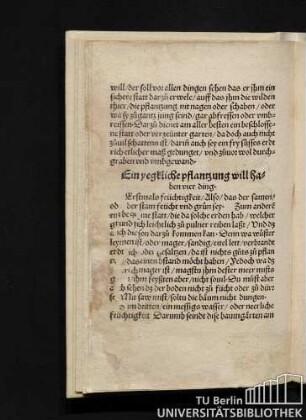 will / der soll vor allen dingen sehen das er jhm ein
sichere statt darzů erwele / auff das jhm die wilden
thier / die pflantzung nit nagen oder schaben / oder
wa sie zů gantz jung seind / gar abfressen oder umb-
reissen. Darzů dienet am aller besten ein beschlosse-
ne statt oder verzeünter garten / da doch auch nicht
zů vil schatten ist / darin auch sey ein fry süsses erdt
rich etlicher maß gedunget / und zůvor wol durch-
graben und umbgewand.
Ein yegkliche pflantzung will ha-
ben vier ding.
Erstmals feüchtigkeit / Also / das der samen /
oder der stam feücht und grün sey. Zum andern
ein bequeme statt / die da solche erden hab / welcher
grund sich leichtlich zů pulver reiben laßt / Und da
die son darzů kommen kan. Denn wa wůster
leymen ist / oder mager / sandig / eitel lett / verbrandt
erdtrich oder gesaltzen / da ist nichts gůts zů pflan
bstand möcht haben / Jedoch wa das
erdtrich mager ist / magstu jhm dester meer mists
jhm feyst ern aber / nicht souil. Du můst aber
auch sehen das der boden nicht zů feücht oder zů dürr
sey. Mit saw mist / soltu die bäum nicht dungen.
Zum dritten / ein messigs wasser / oder neerliche
früchtigkeit. Darumb seindt dise baumgärten am
TU Berlin
UNIVERSITÄTSBIBLIOTHEK